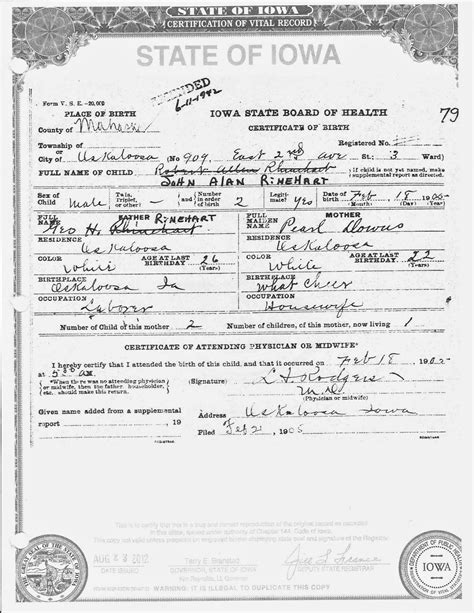 STATE OF IOWA
CERTIFICATION OF VITAL RECORD
STATE OF IOWA
AMENDED
6-11-1942
Form V. S. E.-20,000
PLACE OF BIRTH
IOWA STATE BOARD OF HEALTH
79
County of Mahaska
CERTIFICATE OF BIRTH
Township of
Registered No.
City of Oskaloosa (No 909, East 2nd ave St.; 3 Ward)
FULL NAME OF CHILD Robert Allen Rhinehart
If child is not yet named, make supplemental report as directed.
JOHN ALAN RINEHART
Sex of Child Male Twin, Triplet, or other? and Number in order of birth 2 Legitimate? yes Date of Birth Feb 18 1905
(Month) (Day) (Year)
FULL NAME FATHER RINEHART
Geo H. Rhinehart
FULL MAIDEN NAME MOTHER
Pearl Downs
RESIDENCE
Oskaloosa
RESIDENCE
Oskaloosa
COLOR White AGE AT LAST BIRTHDAY 26 (Years)
COLOR White AGE AT LAST BIRTHDAY 22 (Years)
BIRTHPLACE
Oskaloosa Ia
BIRTHPLACE
What Cheer
OCCUPATION
Laborer
OCCUPATION
Housewife
Number of Child of this mother 2 Number of children, of this mother, now living 1
CERTIFICATE OF ATTENDING PHYSICIAN OR MIDWIFE*
I hereby certify that I attended the birth of this child, and that it occurred on Feb 18, 1905
at 5 30 am.
*When there was no attending physician or midwife, then the father, householder, etc. should make this return.
(Signature) L. A. Rodgers
M. D.
Given name added from a supplemental
report 19
REGISTRAR
Address Oskaloosa Iowa
Filed Feb 21 1905
REGISTRAR
This is to certify that this is a true and correct reproduction of the original record as recorded
in this office, issued under authority of Chapter 144, Code of Iowa.
AUG 23 2012
DATE ISSUED
Terry E. Branstad
GOVERNOR, STATE OF IOWA
Kim Reynolds, Lt. Governor
DEPUTY STATE REGISTRAR
WARNING: IT IS ILLEGAL TO DUPLICATE THIS COPY
DEPARTMENT OF PUBLIC HEALTH
IOWA